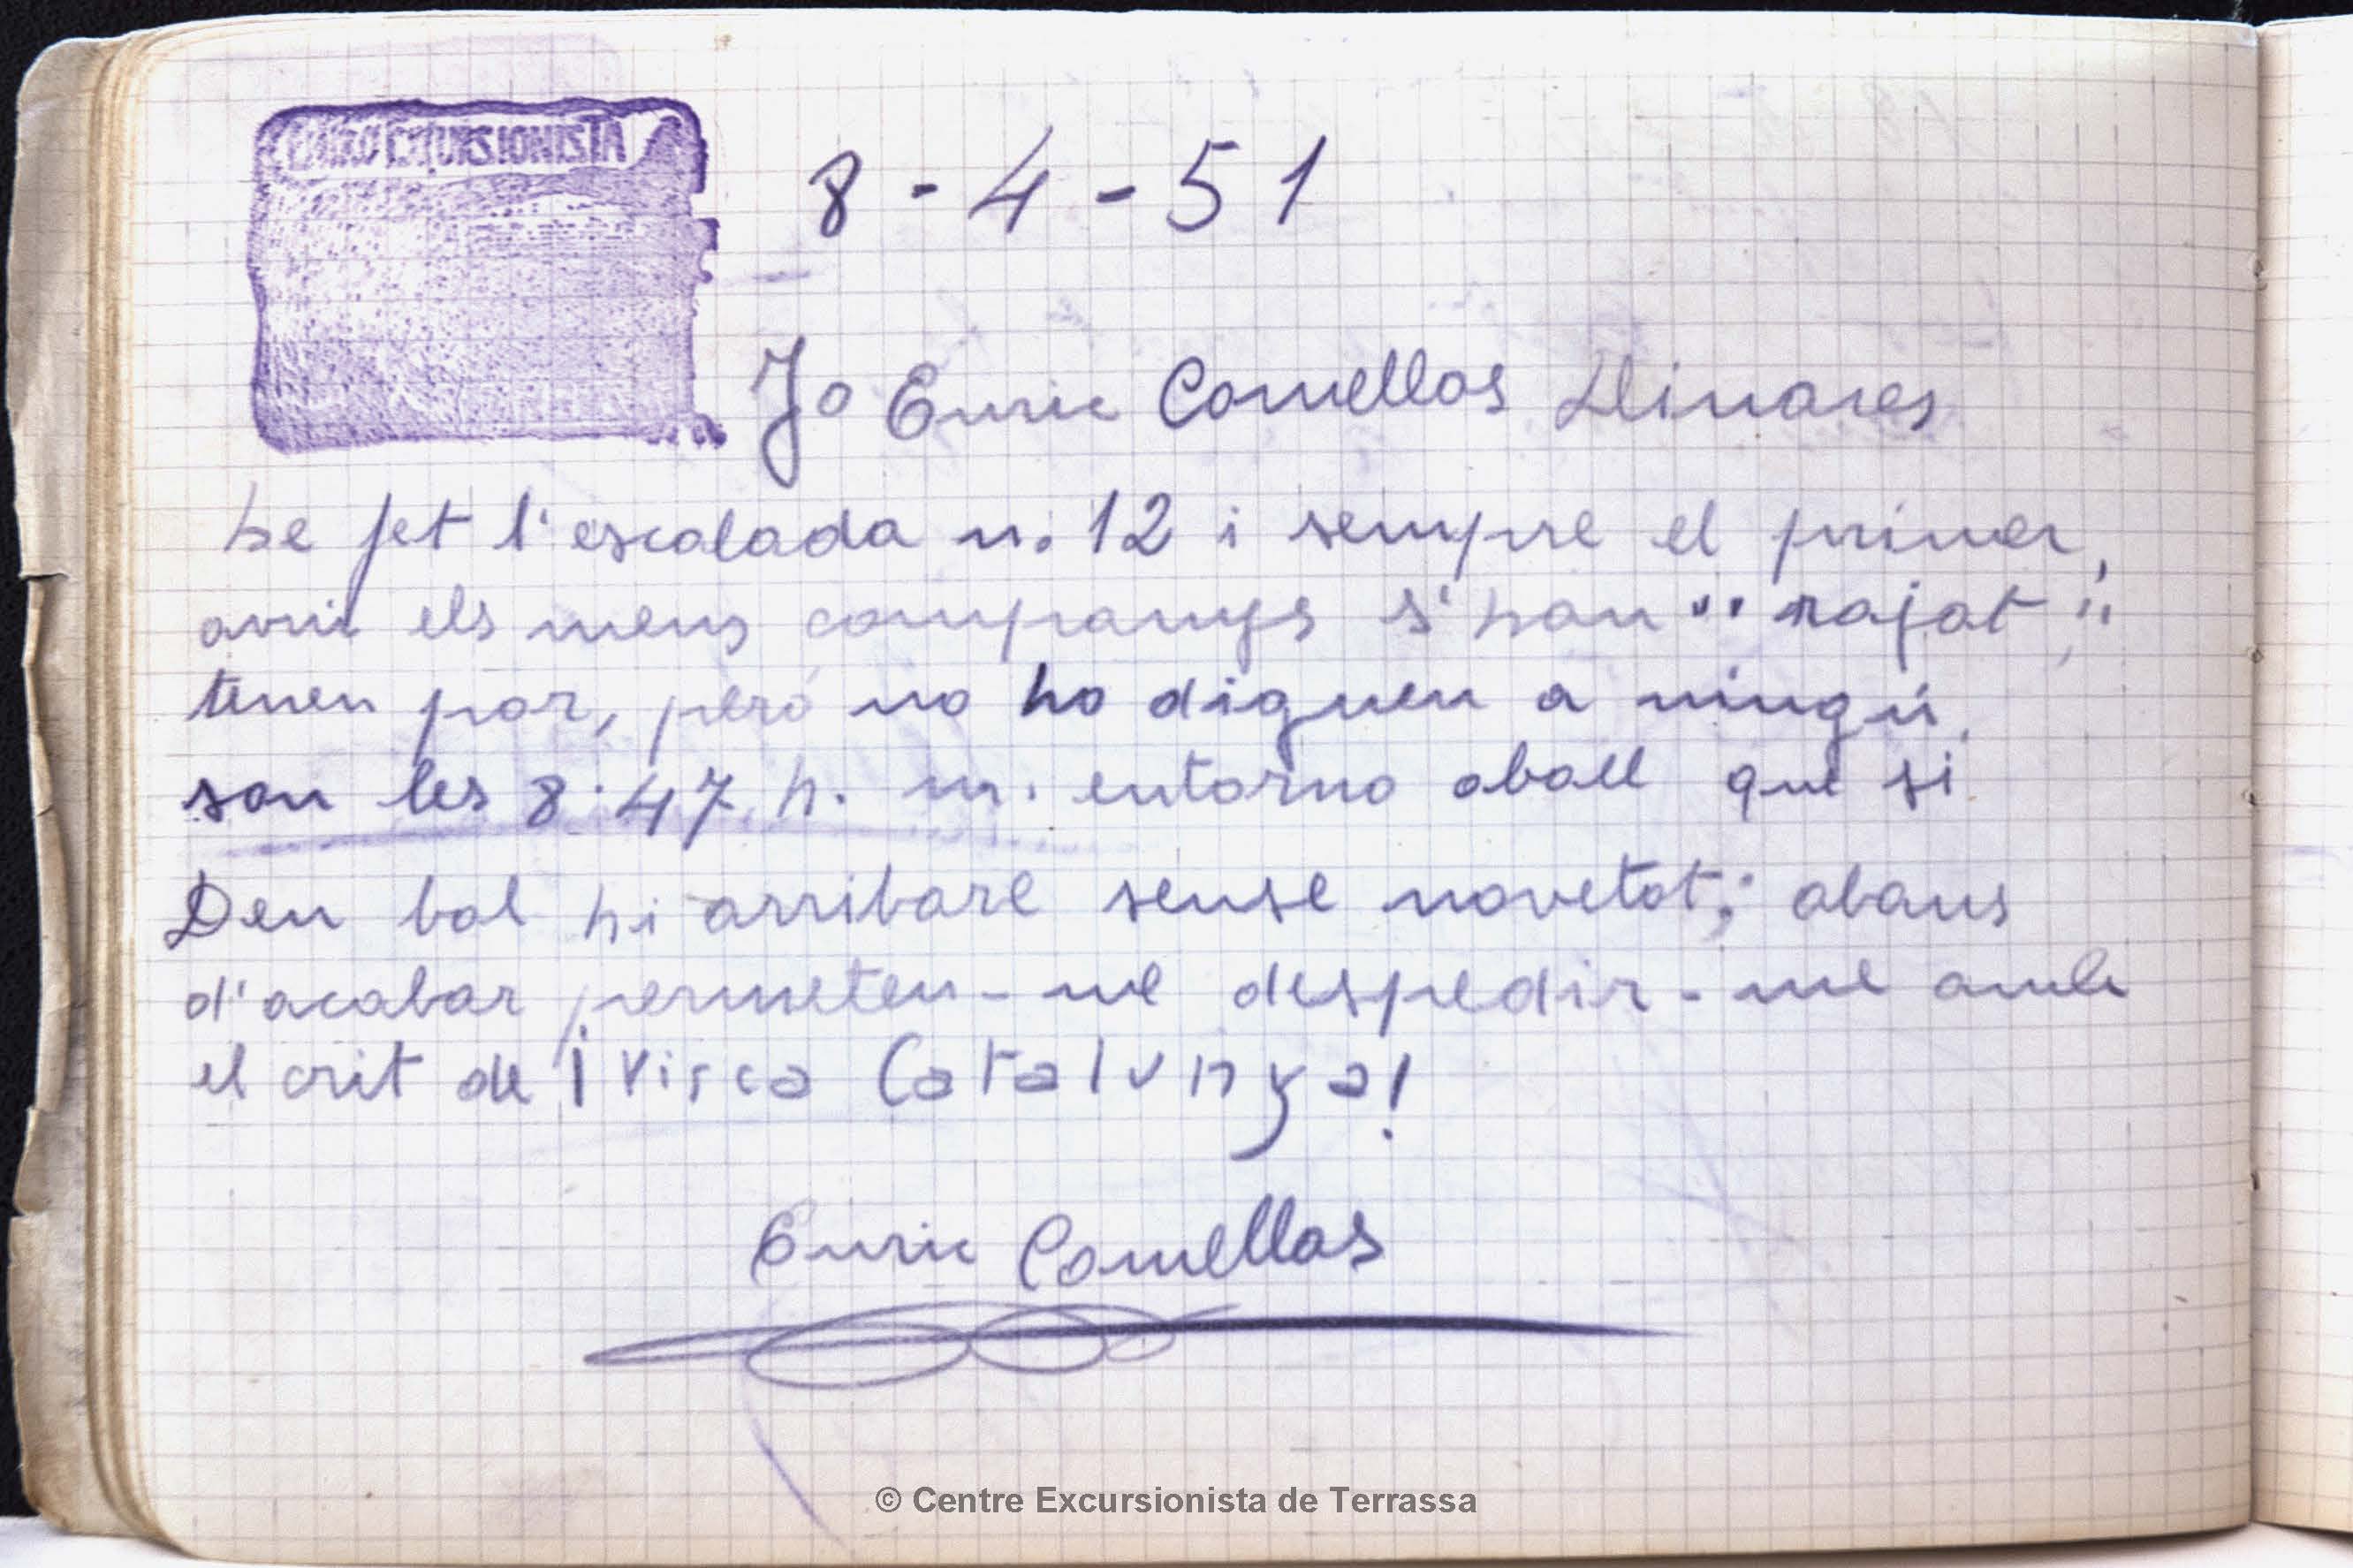 CENTRO EXCURSIONISTA
8-4-51
Jo Enric Comellas Llinares
he fet l'escalada n. 12 i sempre el primer,
avui els meus companys s'han " rajat "
tenen por, però no ho digueu a ningú,
son les 8'47 h. m. entorno aball que si
Deu bol hi arribaré sense novetat; abans
d'acabar permeteu-me despedir-me amb
el crit de ¡Visca Catalunya!
Enric Comellas
© Centre Excursionista de Terrassa